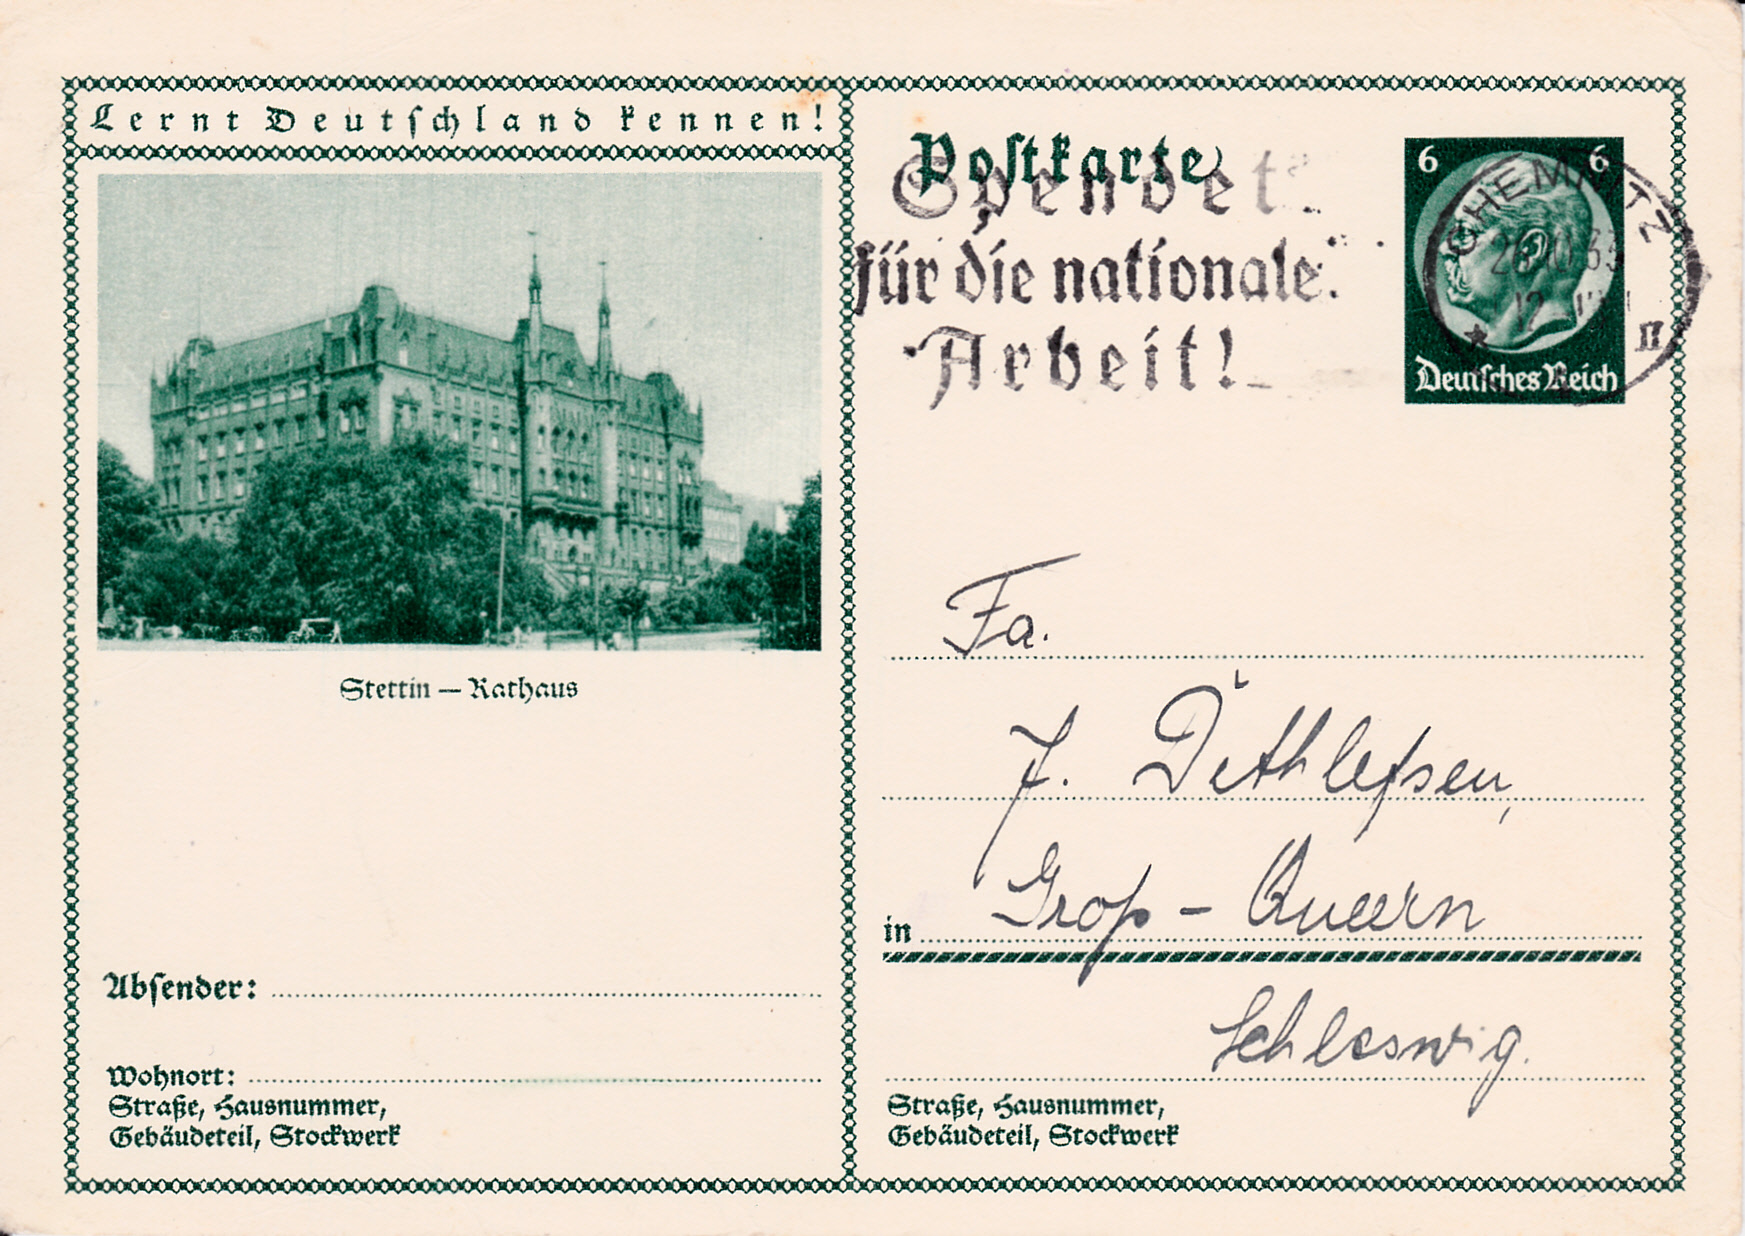 Lernt Deutschland kennen!
Stettin — Rathaus
Absender:
Wohnort:
Straße, Hausnummer,
Gebäudeteil, Stockwerk
Postkarte
Spendet
für die nationale
Arbeit!
6 6
Deutsches Reich
CHEMNITZ
Fa.
J. Dethlefsen,
in Groß-Queern
Schleswig.
Straße, Hausnummer,
Gebäudeteil, Stockwerk